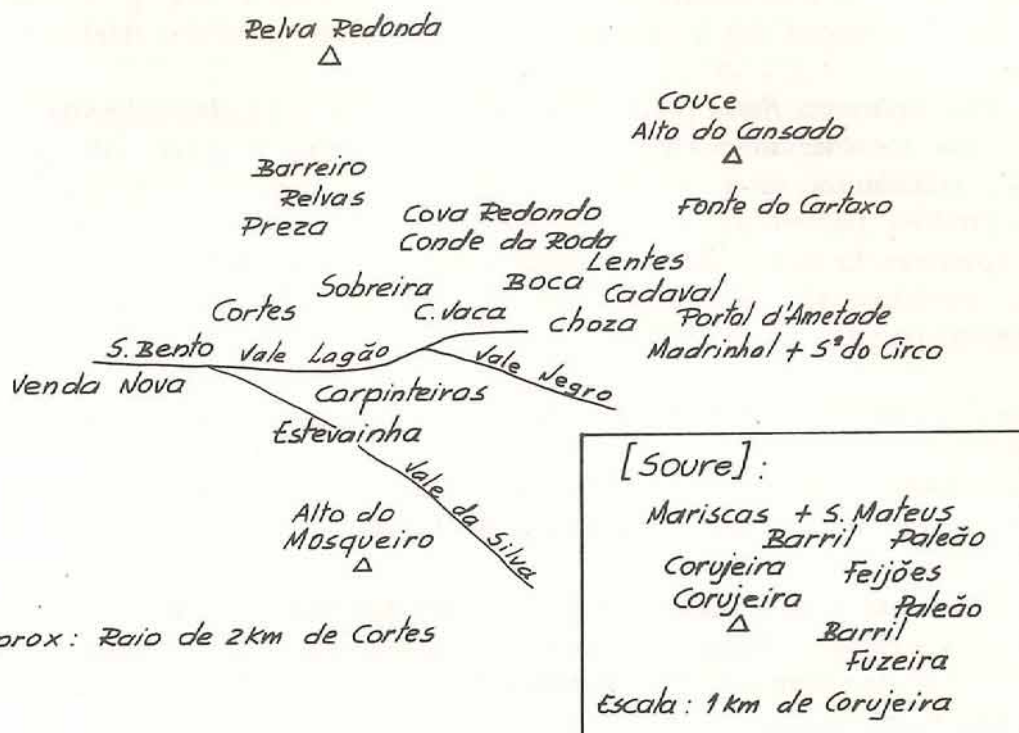 Relva Redonda
Couce
Alto do Cansado
Barreiro
Relvas
Preza
Fonte do Cartaxo
Cova Redondo
Conde da Roda
Lentes
Boca
Cadaval
Sobreira
Cortes
C. Vaca
Choza
Portal d'Ametade
Madrinhol + Sª do Circo
S. Bento
Vale Lagão
Vale Negro
Venda Nova
Carpinteiras
Estevainha
Vale da Silva
Alto do
Mosqueiro
prox: Raio de 2Km de Cortes
[Soure]:
Mariscas + S. Mateus
Barril Paleão
Corujeira Feijões
Corujeira Paleão
Barril
Fuzeira
Escala: 1 Km de Corujeira